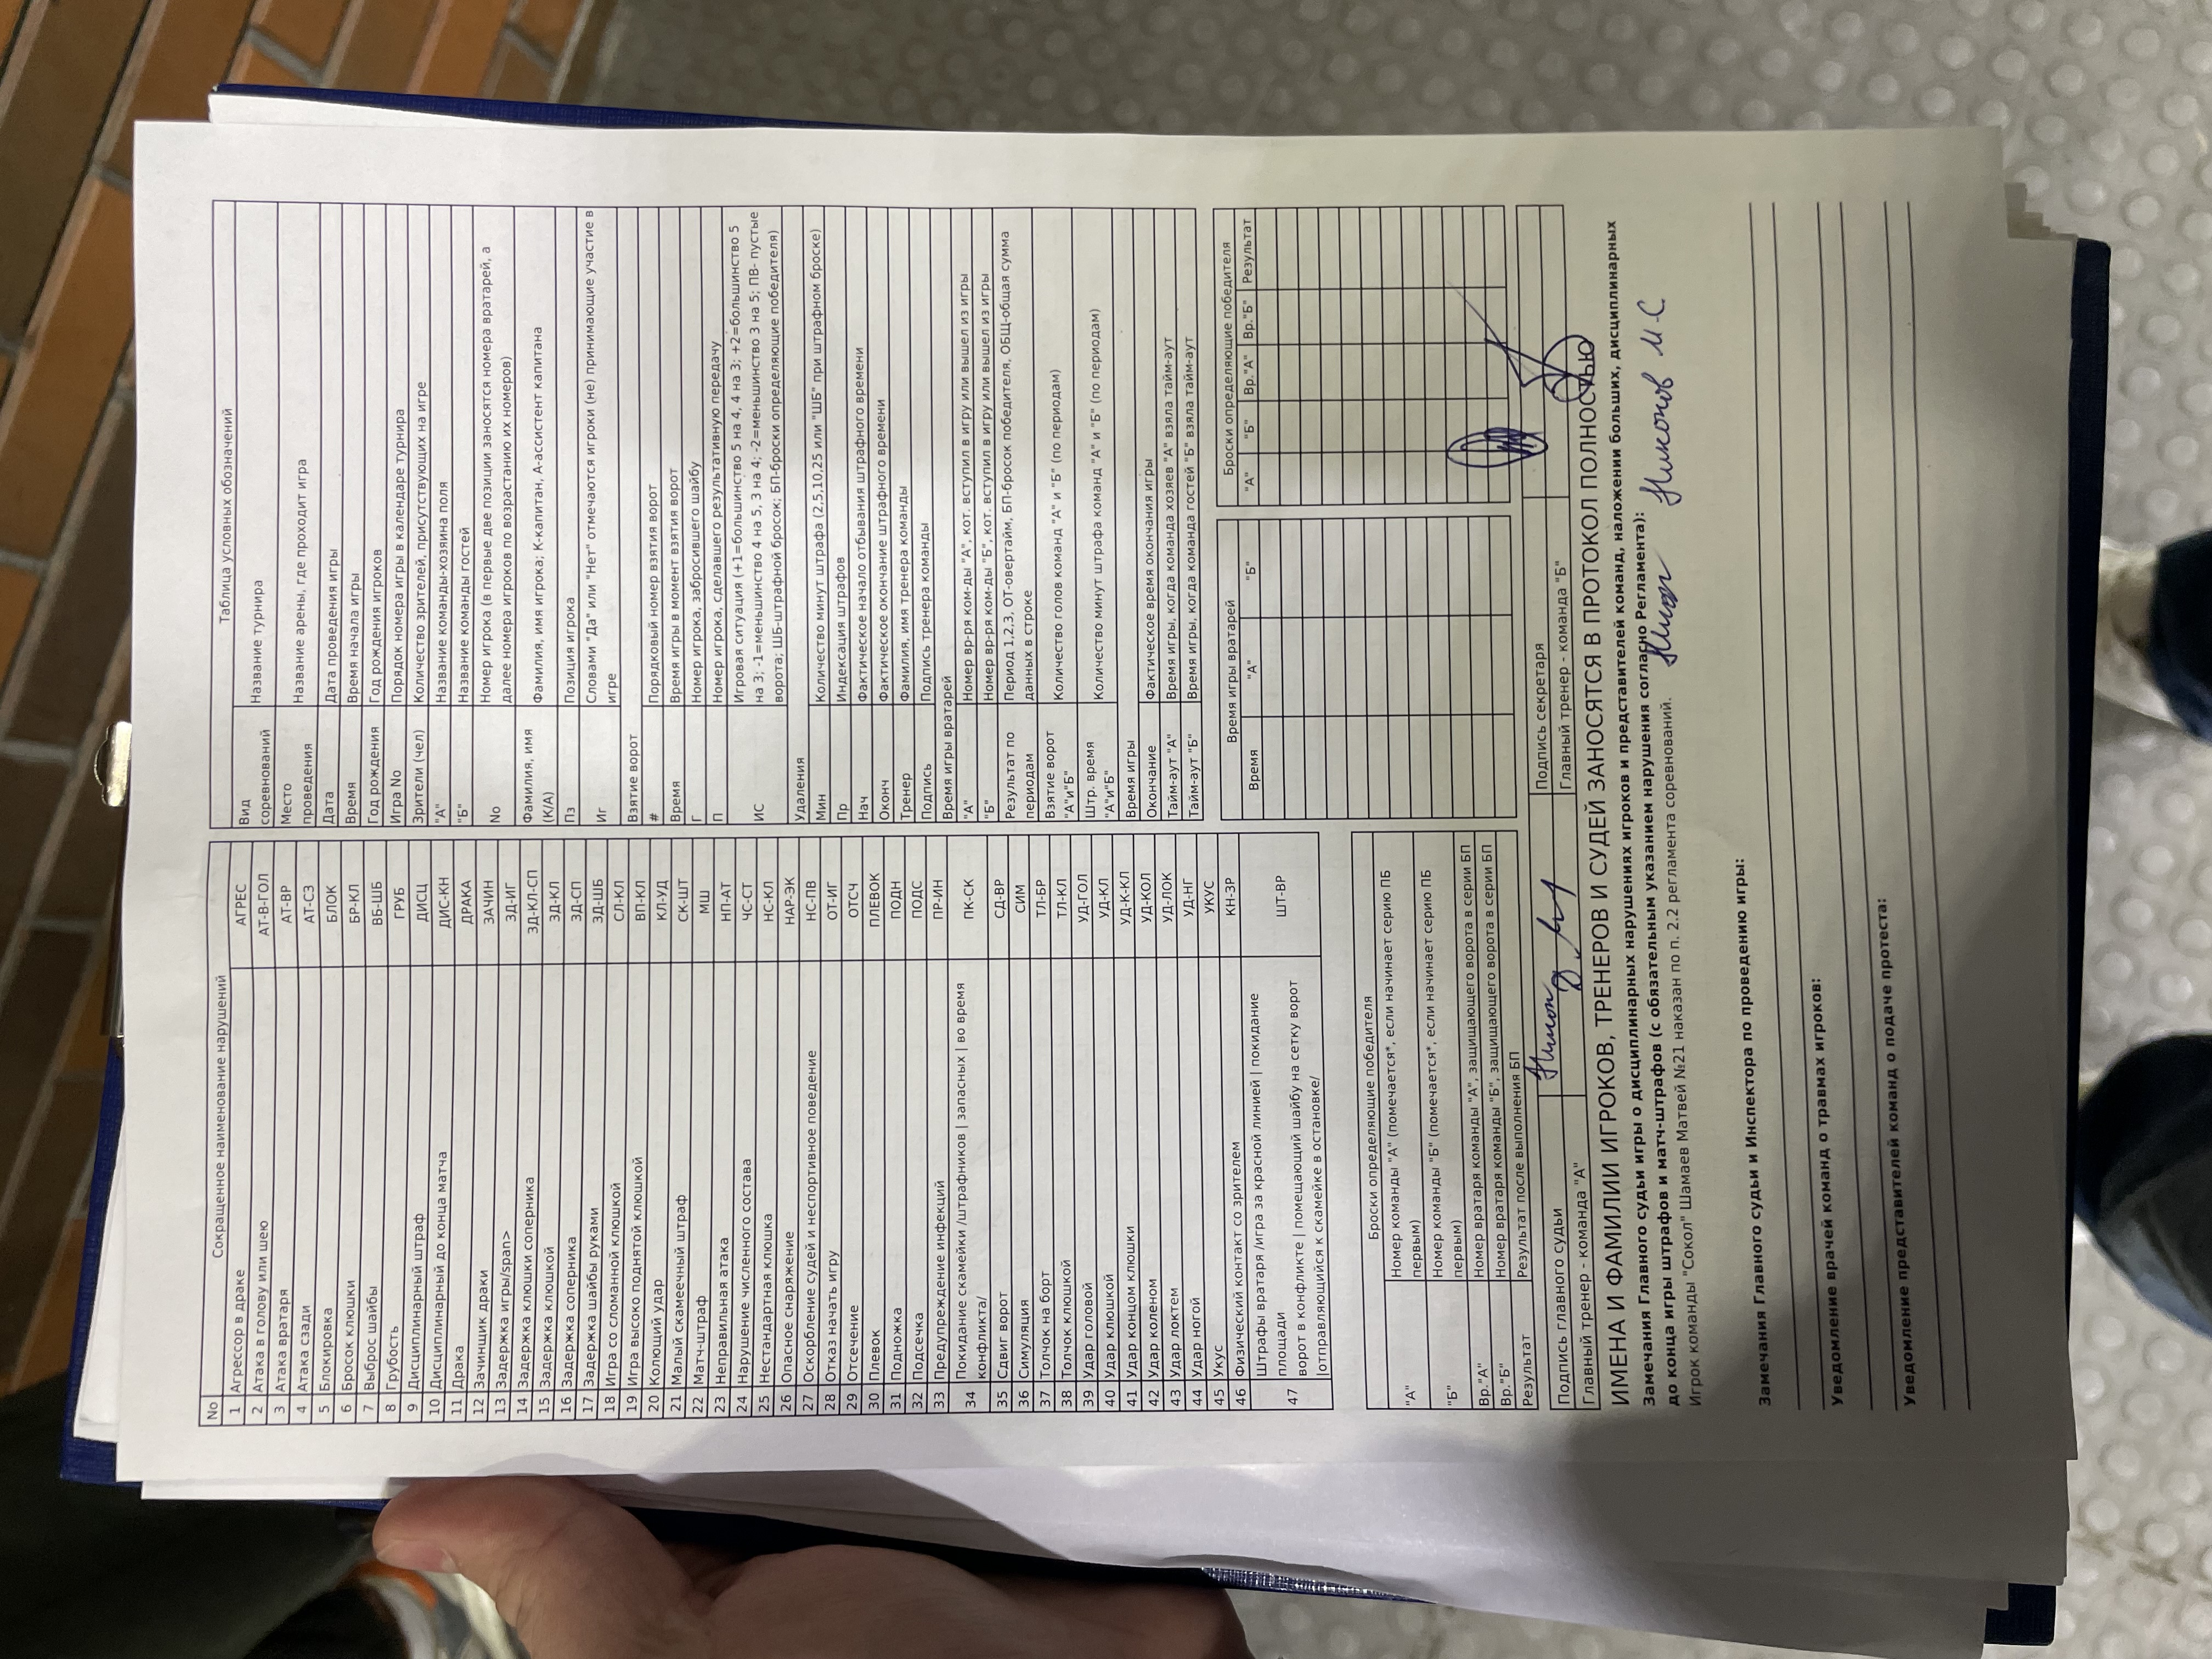 No Сокращенное наименование нарушений
1 Агрессор в драке АГРЕС
2 Атака в голову или шею АТ-В-ГОЛ
3 Атака вратаря АТ-ВР
4 Атака сзади АТ-СЗ
5 Блокировка БЛОК
6 Бросок клюшки БР-КЛ
7 Выброс шайбы ВБ-ШБ
8 Грубость ГРУБ
9 Дисциплинарный штраф ДИСЦ
10 Дисциплинарный до конца матча ДИС-КН
11 Драка ДРАКА
12 Зачинщик драки ЗАЧИН
13 Задержка игры/span> ЗД-ИГ
14 Задержка клюшки соперника ЗД-КЛ-СП
15 Задержка клюшкой ЗД-КЛ
16 Задержка соперника ЗД-СП
17 Задержка шайбы руками ЗД-ШБ
18 Игра со сломанной клюшкой СЛ-КЛ
19 Игра высоко поднятой клюшкой ВП-КЛ
20 Колющий удар КЛ-УД
21 Малый скамеечный штраф СК-ШТ
22 Матч-штраф МШ
23 Неправильная атака НП-АТ
24 Нарушение численного состава ЧС-СТ
25 Нестандартная клюшка НС-КЛ
26 Опасное снаряжение НАР-ЭК
27 Оскорбление судей и неспортивное поведение НС-ПВ
28 Отказ начать игру ОТ-ИГ
29 Отсечение ОТСЧ
30 Плевок ПЛЕВОК
31 Подножка ПОДН
32 Подсечка ПОДС
33 Предупреждение инфекций ПР-ИН
34 Покидание скамейки /штрафников | запасных | во время
конфликта/ ПК-СК
35 Сдвиг ворот СД-ВР
36 Симуляция СИМ
37 Толчок на борт ТЛ-БР
38 Толчок клюшкой ТЛ-КЛ
39 Удар головой УД-ГОЛ
40 Удар клюшкой УД-КЛ
41 Удар концом клюшки УД-К-КЛ
42 Удар коленом УД-КОЛ
43 Удар локтем УД-ЛОК
44 Удар ногой УД-НГ
45 Укус УКУС
46 Физический контакт со зрителем КН-ЗР
47 Штрафы вратаря /игра за красной линией | покидание
площади
ворот в конфликте | помещающий шайбу на сетку ворот
|отправляющийся к скамейке в остановке/ ШТ-ВР
Таблица условных обозначений
Вид
соревнований Название турнира
Место
проведения Название арены, где проходит игра
Дата Дата проведения игры
Время Время начала игры
Год рождения Год рождения игроков
Игра No Порядок номера игры в календаре турнира
Зрители (чел) Количество зрителей, присутствующих на игре
"А" Название команды-хозяина поля
"Б" Название команды гостей
No Номер игрока (в первые две позиции заносятся номера вратарей, а
далее номера игроков по возрастанию их номеров)
Фамилия, имя
(К/А) Фамилия, имя игрока; К-капитан, А-ассистент капитана
Пз Позиция игрока
Иг Словами "Да" или "Нет" отмечаются игроки (не) принимающие участие в
игре
Взятие ворот
# Порядковый номер взятия ворот
Время Время игры в момент взятия ворот
Г Номер игрока, забросившего шайбу
П Номер игрока, сделавшего результативную передачу
ИС Игровая ситуация (+1=большинство 5 на 4, 4 на 3; +2=большинство 5
на 3; -1=меньшинство 4 на 5, 3 на 4; -2=меньшинство 3 на 5; ПВ- пустые
ворота; ШБ-штрафной бросок; БП-броски определяющие победителя)
Удаления
Мин Количество минут штрафа (2,5,10,25 или "ШБ" при штрафном броске)
Пр Индексация штрафов
Нач Фактическое начало отбывания штрафного времени
Оконч Фактическое окончание штрафного времени
Тренер Фамилия, имя тренера команды
Подпись Подпись тренера команды
Время игры вратарей
"А" Номер вр-ря ком-ды "А", кот. вступил в игру или вышел из игры
"Б" Номер вр-ря ком-ды "Б", кот. вступил в игру или вышел из игры
Результат по
периодам Период 1,2,3, ОТ-овертайм, БП-бросок победителя, ОБЩ-общая сумма
данных в строке
Взятие ворот
"А"и"Б" Количество голов команд "А" и "Б" (по периодам)
Штр. время
"А"и"Б" Количество минут штрафа команд "А" и "Б" (по периодам)
Время игры
Окончание Фактическое время окончания игры
Тайм-аут "А" Время игры, когда команда хозяев "А" взяла тайм-аут
Тайм-аут "Б" Время игры, когда команда гостей "Б" взяла тайм-аут
Броски определяющие победителя
"А" Номер команды "А" (помечается*, если начинает серию ПБ
первым)
"Б" Номер команды "Б" (помечается*, если начинает серию ПБ
первым)
Вр."А" Номер вратаря команды "А", защищающего ворота в серии БП
Вр."Б" Номер вратаря команды "Б", защищающего ворота в серии БП
Результат Результат после выполнения БП
Время игры вратарей
Время "А" "Б"
Броски определяющие победителя
"А" "Б" Вр."А" Вр."Б" Результат
Подпись главного судьи Подпись секретаря
Главный тренер - команда "А" Главный тренер - команда "Б"
ИМЕНА И ФАМИЛИИ ИГРОКОВ, ТРЕНЕРОВ И СУДЕЙ ЗАНОСЯТСЯ В ПРОТОКОЛ ПОЛНОСТЬЮ
Замечания Главного судьи игры о дисциплинарных нарушениях игроков и представителей команд, наложении больших, дисциплинарных
до конца игры штрафов и матч-штрафов (с обязательным указанием нарушения согласно Регламента):
Игрок команды "Сокол" Шамаев Матвей №21 наказан по п. 2.2 регламента соревнований. Никонов М.С
Замечания Главного судьи и Инспектора по проведению игры:
Уведомление врачей команд о травмах игроков:
Уведомление представителей команд о подаче протеста: